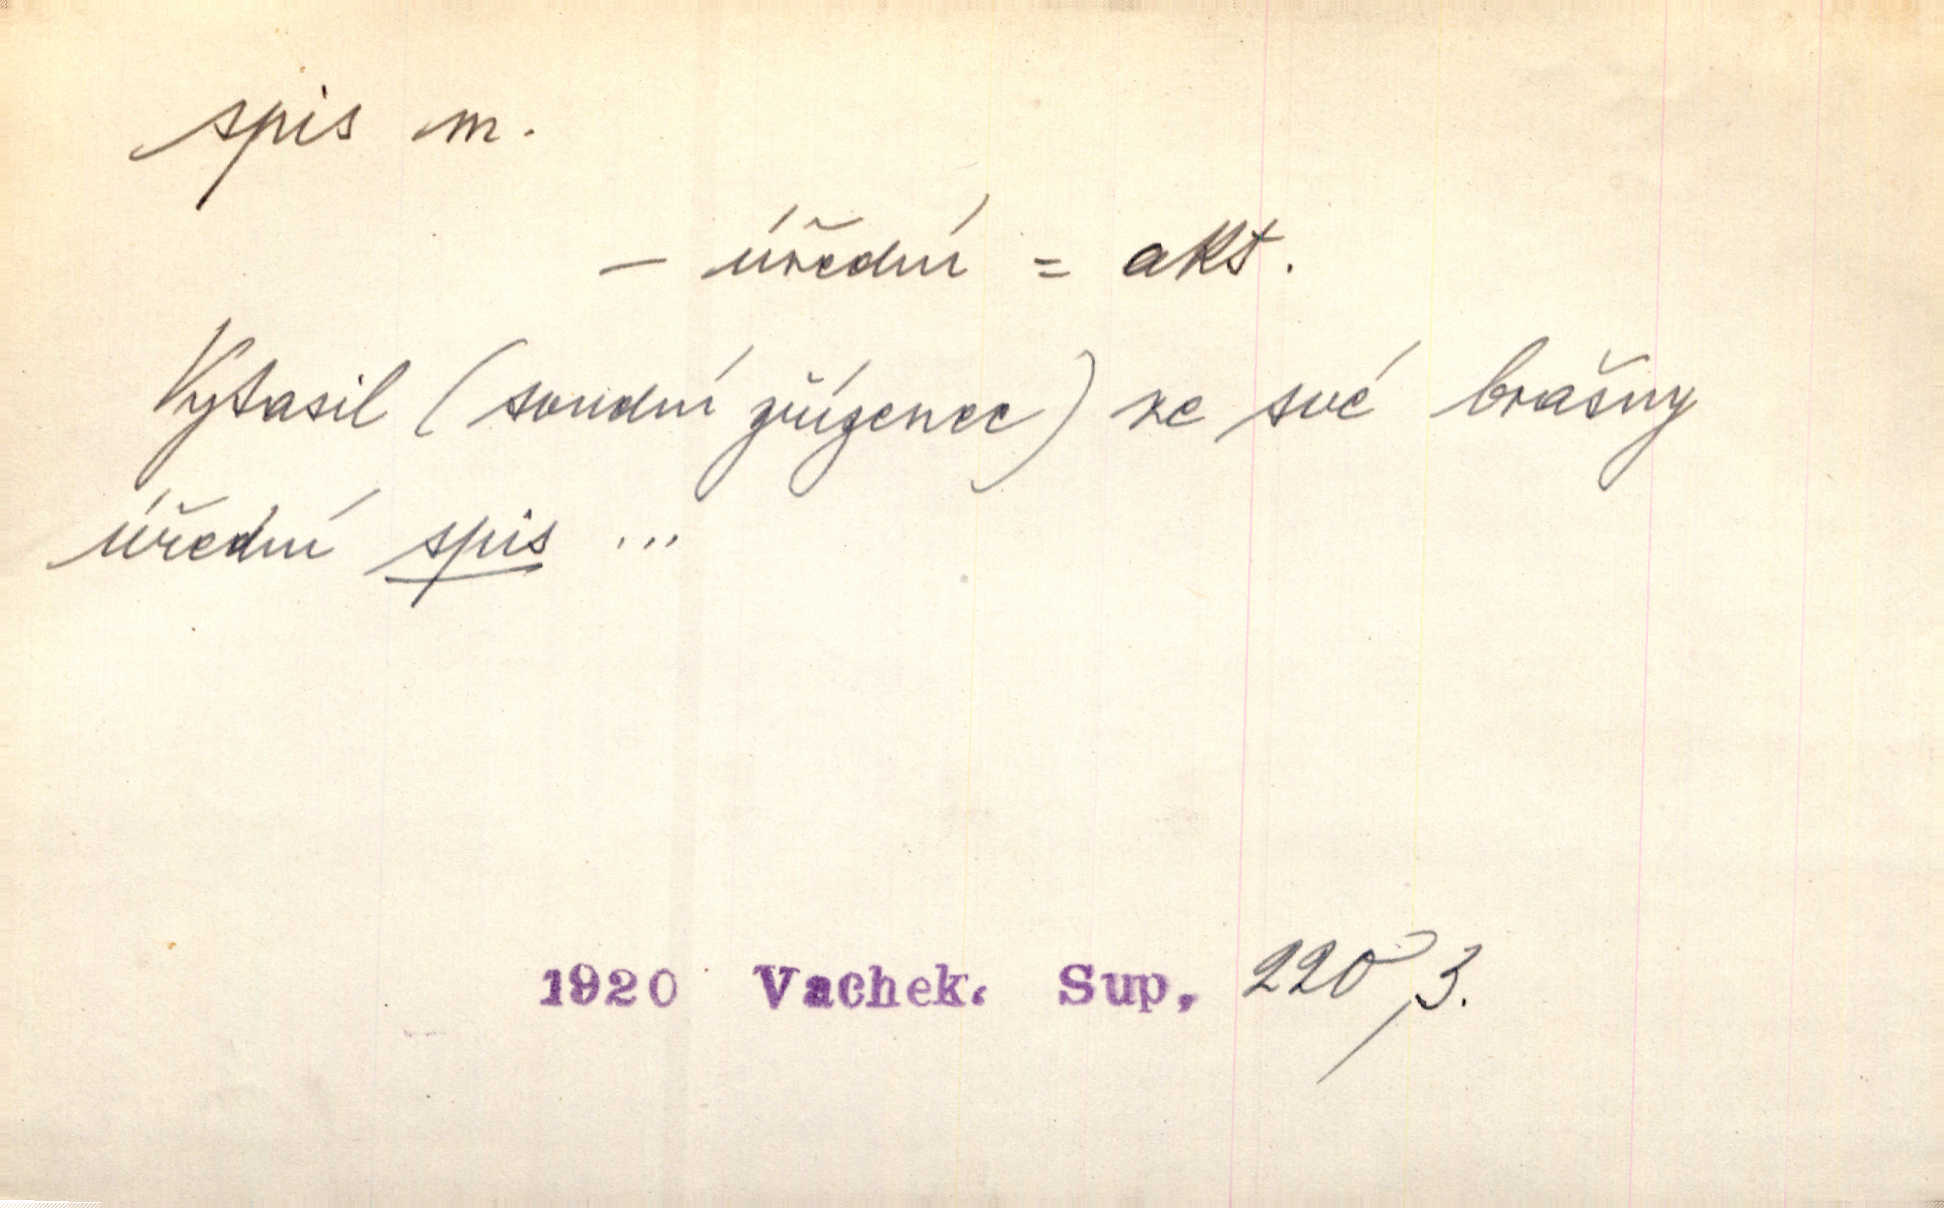 spis m.
– úřední = akt.
Vytasil (soudní zřízenec) ze své brašny
úřední spis ...
1920 Vachek. Sup. 220/3.